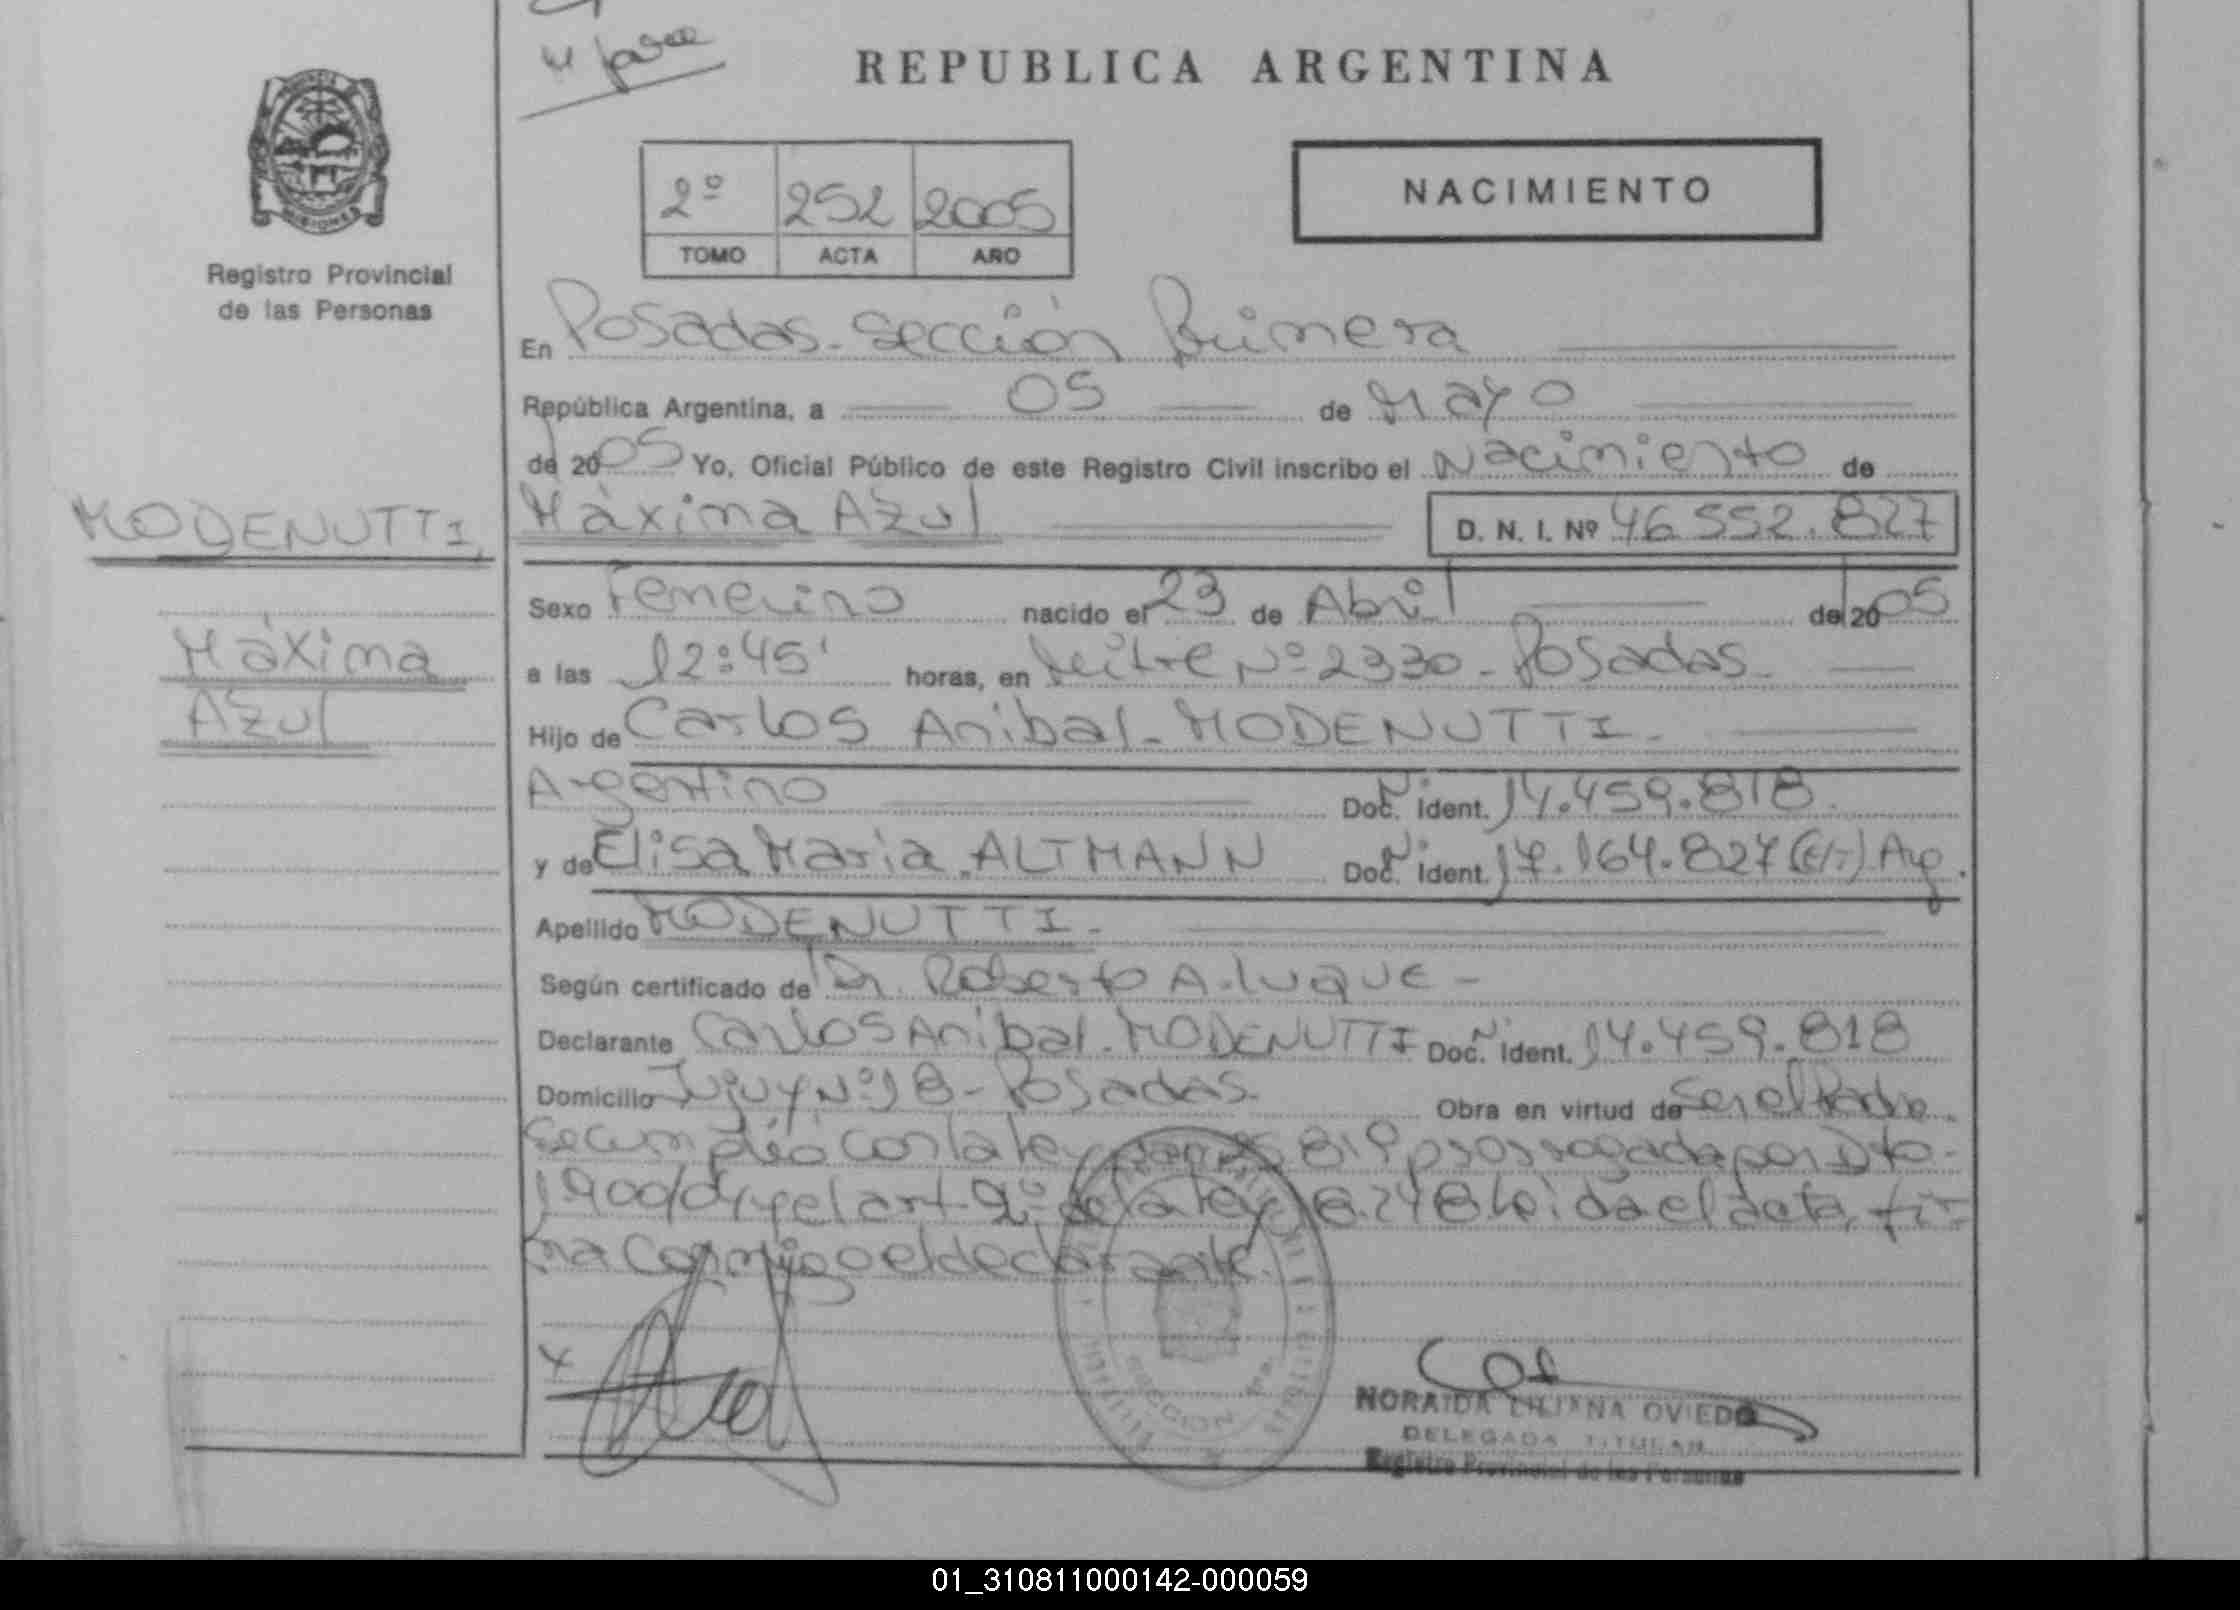 REPUBLICA ARGENTINA
MISIONES
Registro Provincial
de las Personas
2º 252 2005
TOMO ACTA AÑO
NACIMIENTO
En Posadas - Sección Primera
República Argentina, a 05 de Mayo
de 2005 Yo, Oficial Público de este Registro Civil inscribo el Nacimiento de
Máxima Azul D. N. I. Nº 46.552.827
MODENUTTI,
Máxima
Azul
Sexo Femenino nacido el 23 de Abril de 2005
a las 12:45' horas, en Mitre Nº 2330 - Posadas -
Hijo de Carlos Anibal - MODENUTTI -
Argentino Doc. Ident. 14.459.818
y de Elisa Maria ALTMANN Doc. Ident. 17.164.827 (E/T) Arg.
Apellido MODENUTTI -
Según certificado de Dr. Roberto A. Luque -
Declarante Carlos Anibal - MODENUTTI Doc. Ident. 14.459.818
Domicilio Jujuy Nº 18 - Posadas - Obra en virtud de Ser el Padre
Se cumplió con la Ley 25.819 prorrogada por Dto -
1900/04 y el art. 2º de la Ley 18.248 leida el acta, fir-
ma conmigo el declarante.
SECCION
NORAIDA LILIANA OVIEDO
DELEGADA TITULAR
Registro Provincial de las Personas
01_310811000142-000059